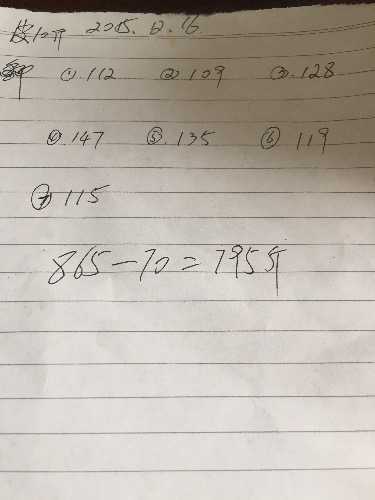 皮10斤 2015.12.16
①.112 ②.109 ③.128
④.147 ⑤.135 ⑥ 119
⑦ 115
865-70=795斤